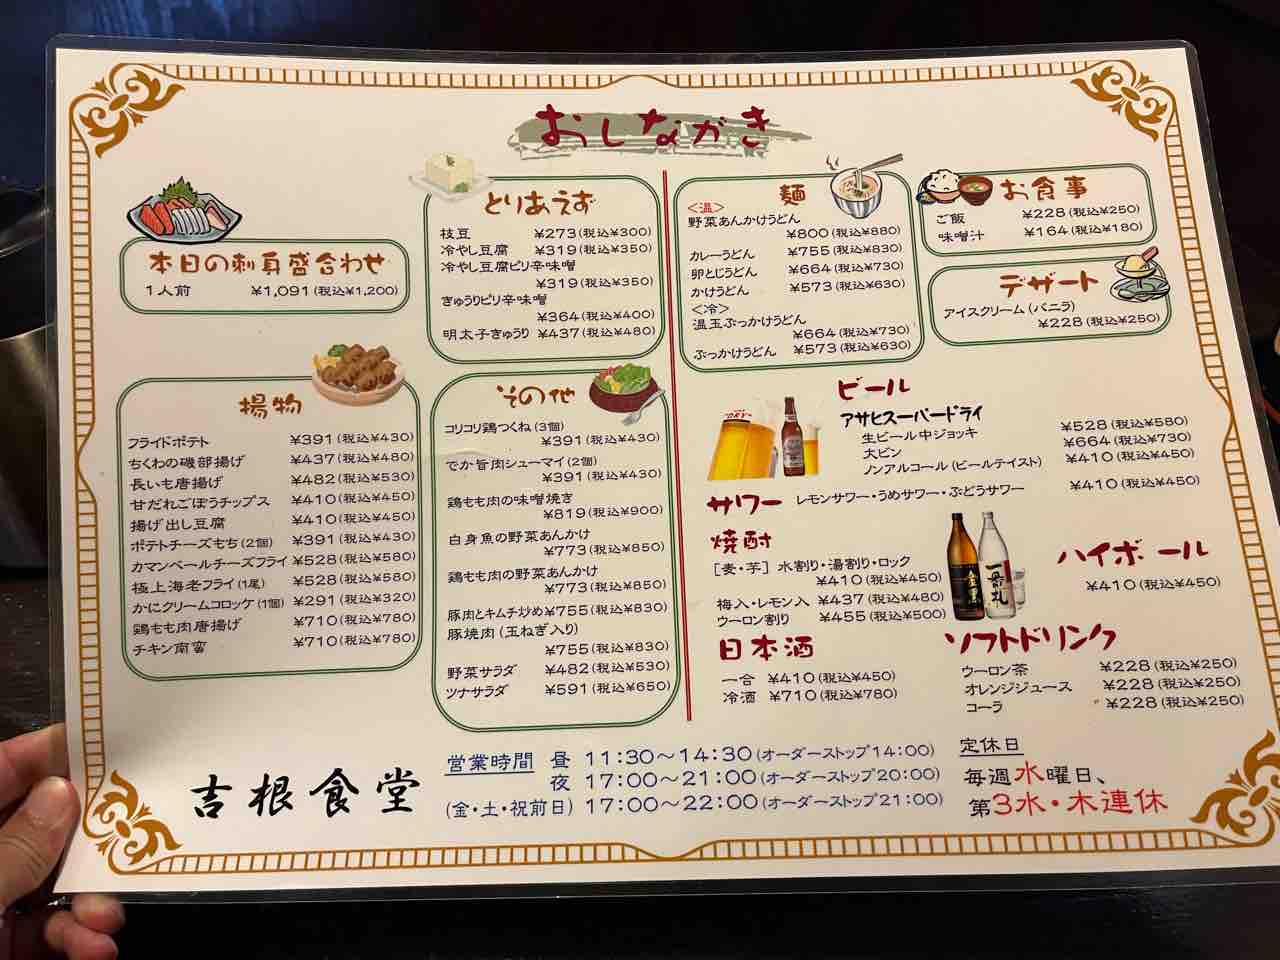 おしながき
本日の刺身盛合わせ
1人前 ¥1,091(税込¥1,200)
揚物
フライドポテト ¥391(税込¥430)
ちくわの磯部揚げ ¥437(税込¥480)
長いも唐揚げ ¥482(税込¥530)
甘だれごぼうチップス ¥410(税込¥450)
揚げ出し豆腐 ¥410(税込¥450)
ポテトチーズもち(2個) ¥391(税込¥430)
カマンベールチーズフライ ¥528(税込¥580)
極上海老フライ(1尾) ¥528(税込¥580)
かにクリームコロッケ(1個) ¥291(税込¥320)
鶏もも肉唐揚げ ¥710(税込¥780)
チキン南蛮 ¥710(税込¥780)
とりあえず
枝豆 ¥273(税込¥300)
冷やし豆腐 ¥319(税込¥350)
冷やし豆腐ピリ辛味噌
¥319(税込¥350)
きゅうりピリ辛味噌
¥364(税込¥400)
明太子きゅうり ¥437(税込¥480)
その他
コリコリ鶏つくね(3個)
¥391(税込¥430)
でか旨肉シューマイ(2個)
¥391(税込¥430)
鶏もも肉の味噌焼き
¥819(税込¥900)
白身魚の野菜あんかけ
¥773(税込¥850)
鶏もも肉の野菜あんかけ
¥773(税込¥850)
豚肉とキムチ炒め ¥755(税込¥830)
豚焼肉(玉ねぎ入り)
¥755(税込¥830)
野菜サラダ ¥482(税込¥530)
ツナサラダ ¥591(税込¥650)
麺
<温>
野菜あんかけうどん
¥800(税込¥880)
カレーうどん ¥755(税込¥830)
卵とじうどん ¥664(税込¥730)
かけうどん ¥573(税込¥630)
<冷>
温玉ぶっかけうどん
¥664(税込¥730)
ぶっかけうどん ¥573(税込¥630)
お食事
ご飯 ¥228(税込¥250)
味噌汁 ¥164(税込¥180)
デザート
アイスクリーム(バニラ)
¥228(税込¥250)
ビール
アサヒスーパードライ
生ビール中ジョッキ ¥528(税込¥580)
大ビン ¥664(税込¥730)
ノンアルコール(ビールテイスト) ¥410(税込¥450)
サワー レモンサワー・うめサワー・ぶどうサワー ¥410(税込¥450)
焼酎
[麦・芋] 水割り・湯割り・ロック
¥410(税込¥450)
梅入・レモン入 ¥437(税込¥480)
ウーロン割り ¥455(税込¥500)
ハイボール
¥410(税込¥450)
日本酒
一合 ¥410(税込¥450)
冷酒 ¥710(税込¥780)
ソフトドリンク
ウーロン茶 ¥228(税込¥250)
オレンジジュース ¥228(税込¥250)
コーラ ¥228(税込¥250)
DRY
金黒
一番札
吉根食堂
営業時間 昼 11:30～14:30(オーダーストップ14:00)
夜 17:00～21:00(オーダーストップ20:00)
(金・土・祝前日) 17:00～22:00(オーダーストップ21:00)
定休日
毎週水曜日、
第3水・木連休